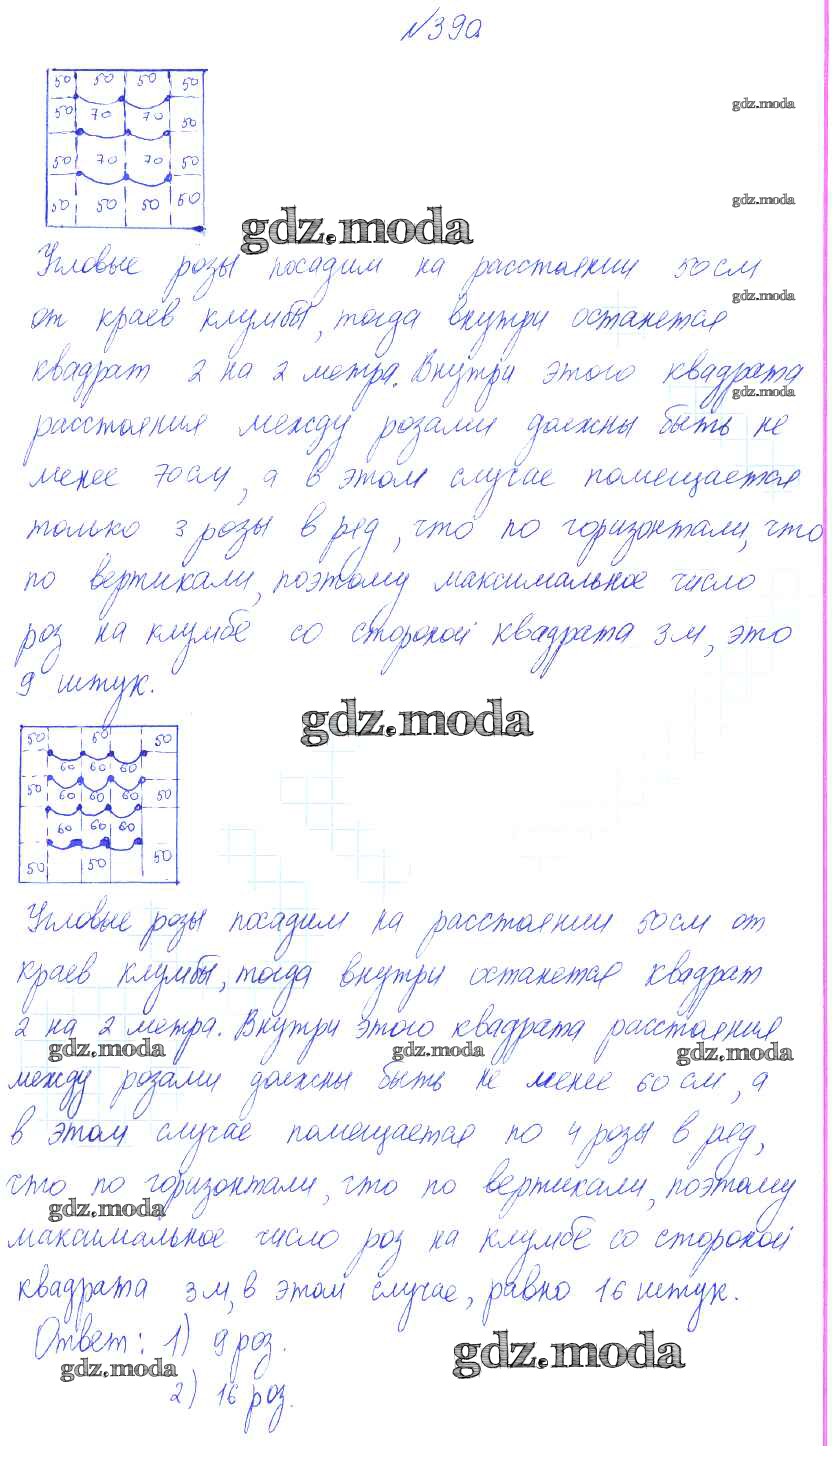 №39а
50 50 50 50
50 70 70 50
50 70 70 50
50 50 50 50
gdz.moda
gdz.moda
gdz.moda
Угловые розы посадим на расстоянии 50 см
gdz.moda
от краев клумбы, тогда внутри останется
квадрат 2 на 2 метра. Внутри этого квадрата
gdz.moda
расстояния между розами должны быть не
менее 70 см, а в этом случае помещается
только 3 розы в ряд, что по горизонтали, что
по вертикали, поэтому максимальное число
роз на клумбе со стороной квадрата 3 м, это
9 штук.
gdz.moda
50 50 50
60 60 60
50 60 60 60 50
60 60 60
50 50 50
Угловые розы посадим на расстоянии 50 см от
краев клумбы, тогда внутри останется квадрат
2 на 2 метра. Внутри этого квадрата расстояния
gdz.moda gdz.moda gdz.moda
между розами должны быть не менее 60 см, а
в этом случае помещается по 4 розы в ряд,
что по горизонтали, что по вертикали, поэтому
gdz.moda
максимальное число роз на клумбе со стороной
квадрата 3 м, в этом случае, равно 16 штук.
Ответ: 1) 9 роз.
gdz.moda gdz.moda
2) 16 роз.